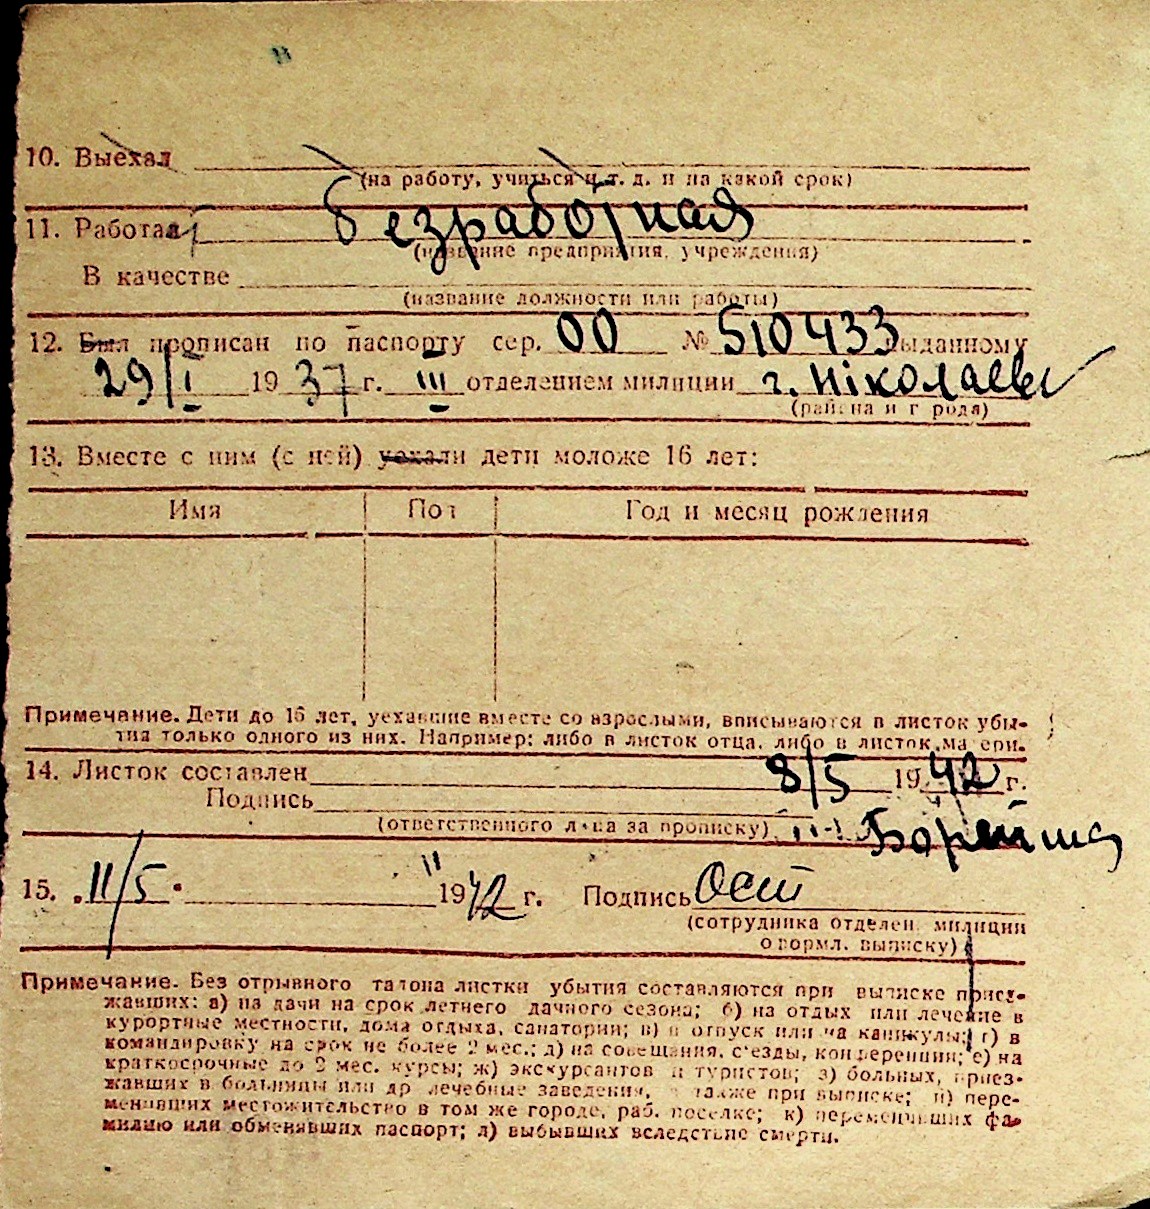 10. Выехал
(на работу, учиться и т. д. и на какой срок)
безработная
11. Работал
(название предприятия, учреждения)
В качестве
(название должности или работы)
12. Был прописан по паспорту сер. 00 № 510433 выданному
29/I 1937 г. III отделением милиции г. Ніколаев
(района и города)
13. Вместе с ним (с ней) уехали дети моложе 16 лет:
Имя Пол Год и месяц рождения
Примечание. Дети до 16 лет, уехавшие вместе со взрослыми, вписываются в листок убы-
тия только одного из них. Например: либо в листок отца, либо в листок матери.
14. Листок составлен 8/5 1942 г.
Подпись
(ответственного лица за прописку) Борейша
15. 11/5 1942 г. Подпись
(сотрудника отделен. милиции
оформл. выписку)
Примечание. Без отрывного талона листки убытия составляются при выписке приез-
жавших: а) на дачи на срок летнего дачного сезона; б) на отдых или лечение в
курортные местности, дома отдыха, санатории; в) в отпуск или на каникулы; г) в
командировку на срок не более 2 мес.; д) на совещания, съезды, конференции; е) на
краткосрочные до 2 мес. курсы; ж) экскурсантов и туристов; з) больных, приез-
жавших в больницы или др лечебные заведения, а также при выписке; и) пере-
менивших местожительство в том же городе, раб. поселке; к) переменивших фа-
милию или обменявших паспорт; л) выбывших вследствие смерти.